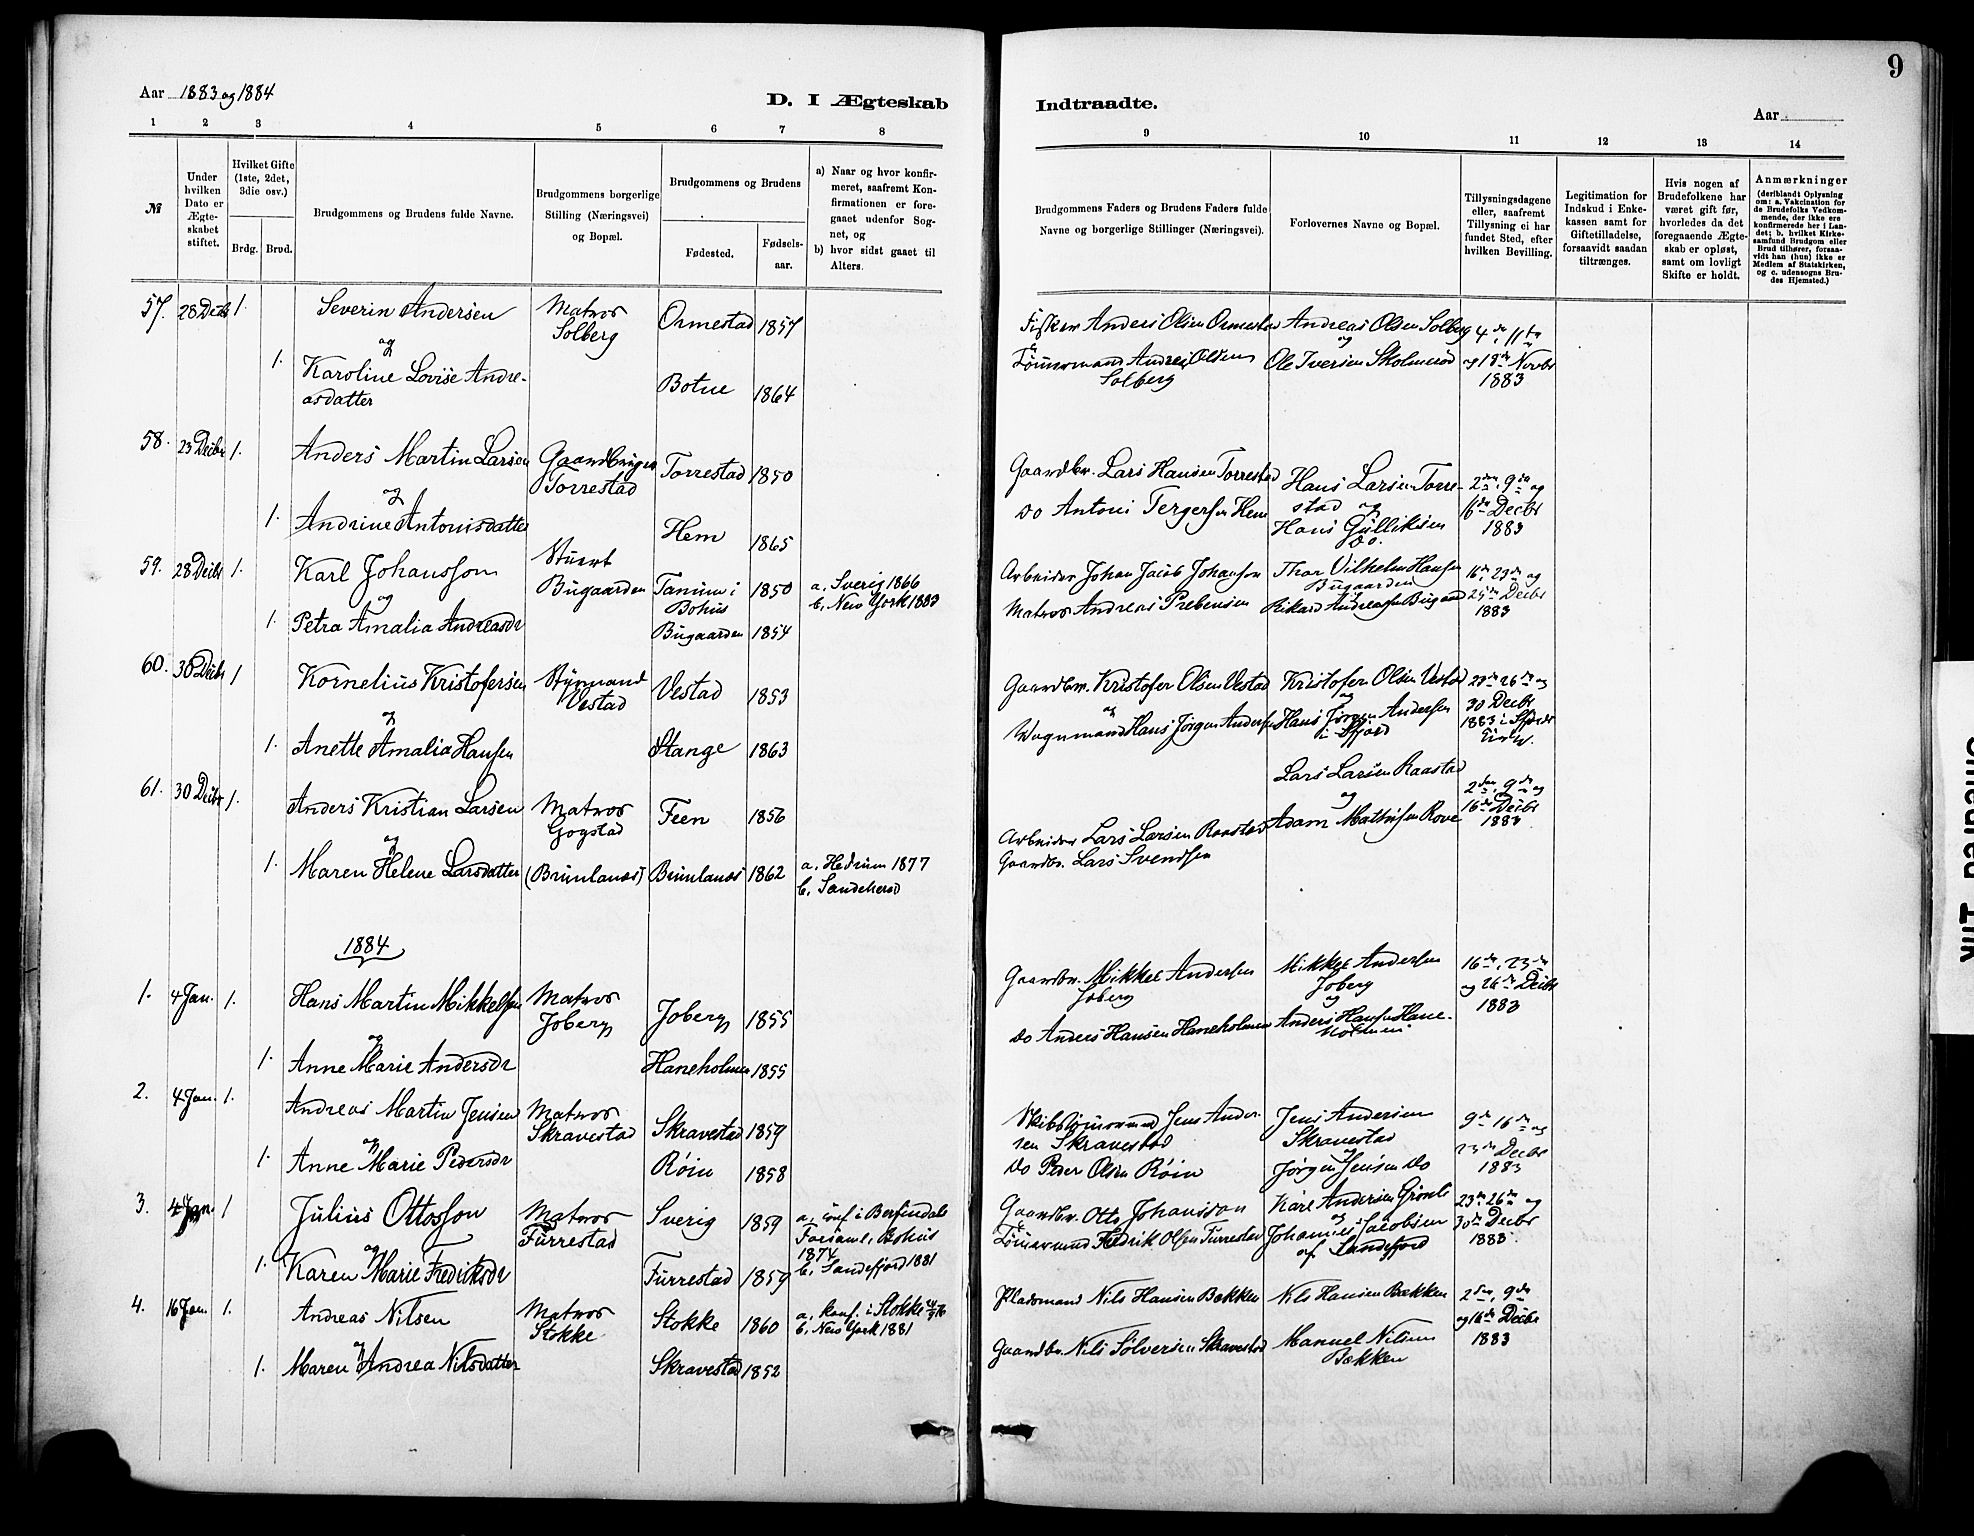 9
Aar 1883 og 1884
D. I Ægteskab Indtraadte.
Aar
1 2 3 4 5 6 7 8 9 10 11 12 13 14
№
Under hvilken Dato er Ægteskabet stiftet.
Hvilket Gifte (1ste, 2det, 3die osv.)
Brdg. Brud.
Brudgommens og Brudens fulde Navne.
Brudgommens borgerlige Stilling (Næringsvei) og Bopæl.
Brudgommens og Brudens
Fødested.
Fødselsaar.
a) Naar og hvor konfirmeret, saafremt Konfirmationen er foregaaet udenfor Sognet, og
b) hvor sidst gaaet til Alters.
Brudgommens Faders og Brudens Faders fulde Navne og borgerlige Stillinger (Næringsvei).
Forlovernes Navne og Bopæl.
Tillysningsdagene eller, saafremt Tillysning ei har fundet Sted, efter hvilken Bevilling.
Legitimation for Indskud i Enkekassen samt for Giftetilladelse, forsaavidt saadan tiltrænges.
Hvis nogen af Brudefolkene har været gift før, hvorledes da det foregaaende Ægteskab er opløst, samt om lovligt Skifte er holdt.
Anmærkninger
(deriblandt Oplysning om: a. Vakcination for de Brudefolks Vedkommende, der ikke ere konfirmerede her i Landet; b. hvilket Kirkesamfund Brudgom eller Brud tilhører, forsaavidt han (hun) ikke er Medlem af Statskirken, og c. udensogns Brudes Hjemsted.)
57. 28 Decbr 1. Severin Andersen Matros Solberg Ormestad 1857 Fisker Anders Olsen Ormestad Andreas Olsen Solberg 4de, 11te
og og
1. Karoline Lovise Andreasdatter Botne 1864 Tømmermand Andreas Olsen Solberg Ole Iversen Skolmerød og 18de Novbr 1883
58. 23 Decbr 1. Anders Martin Larsen Gaardbruger Torrestad Torrestad 1850 Gaardbr. Lars Hansen Torrestad Hans Larsen Torrestad og 2den, 9de og
og
1. Andrine Antonisdatter Hem 1865 do Antoni Tergersen Hem Hans Gulliksen Do. 16de Decbr 1883
59. 28 Decbr 1. Karl Johansson Stuert Bugaarden Tanum i Bohus 1850 a. Sverig 1866 b. New York 1883 Arbeider Johan Jacob Johanson Thor Vilhelm Hansen Bugaarden 16de, 23de og
og
1. Petra Amalia Andreasdr Bugaarden 1854 Matros Andreas Prebensen Rikard Andreasen Bugaard 25de Decbr 1883
60. 30 Decbr 1 Kornelius Kristofersen Styrmand Vestad Vestad 1853 Gaardbr. Kristofer Olsen Vestad Kristofer Olsen Vestad 26de og
og og og
1. Anette Amalia Hansen Stange 1863 Vognmand Hans Jørgen Andersen Hans Jørgen Andersen i Sfjord 30 Decbr 1883 i
61. 30 Decbr 1. Anders Kristian Larsen Matros Gogstad Feen 1856 Arbeider Lars Larsen Raastad Lars Larsen Raastad 2den, 9de og
og og
1. Maren Helene Larsdatter (Brunlanæs) Brunlanæs 1862 a. Hedrum 1877 b. Sandeherad Gaardbr. Lars Svendsen Adam Mathisen Rove 16de Decbr 1883
1884
1. 4 Jan. 1. Hans Martin Mikkelsen Matros Joberg Joberg 1855 Gaardbr. Mikkel Andersen Joberg Mikkel Andersen Joberg 16de, 23de
og og
1. Anne Marie Andersdr Haneholmen 1855 do Anders Hansen Haneholmen Anders Hansen Haneholmen og 26de Decbr 1883
2. 4 Jan. 1. Andreas Martin Jensen Matros Skravestad Skravestad 1859 Skibstømmermand Jens Andersen Skravestad Jens Andersen Skravestad 9de 16de og
og og
1. Anne Marie Pedersdr Røin 1858 do Peder Olsen Røin Jørgen Jensen Do 23de Decbr 1883
3. 4 Jan. 1 Julius Ottosson Matros Furrestad Sverig 1859 a. conf. i Forsaml. Bohus 1874 b. Sandefjord 1881 Gaardbr. Otto Johansson Karl Andersen 23de 26de og
og og
1. Karen Marie Fredriksdr Furrestad 1859 Tømmermand Fredrik Olsen Furrestad Johannes Jacobsen af Sandefjord 30te Decbr 1883
4. 16 Jan. 1. Andreas Nilsen Matros Stokke Stokke 1860 a. konf. i Stokke b. New York 1881 Pladsmand Nils Hansen Bækken Nils Hansen Bækken 2den, 9de
og
1. Maren Andrea Nilsdatter Skravestad 1852 Gaardbr. Nils Sølversen Skravestad Manuel Nilsen Bækken og 16de Decbr 1883